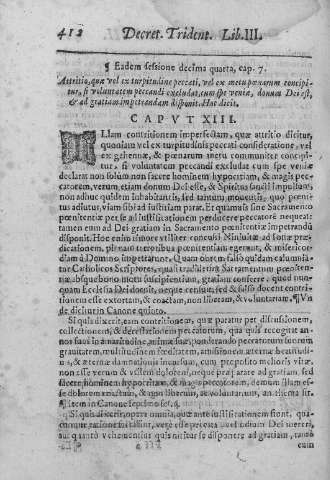 412 Decret. Trident. Lib. III.
¶ Eadem sessione decima quarta, cap. 7.
Attritio, quæ vel ex turpitudine peccati, vel ex metu pœnarum concipi-
tur, si voluntatem peccandi excludat, cum spe veniæ, donum Dei est,
& ad gratiam impetrandam disponit. Hoc dicit.
CAPVT XIII.
ILlam contritionem imperfectam, quæ attritio dicitur,
quoniam vel ex turpitudinis peccati consideratione, vel
ex gehennæ, & pœnarum metu communiter concipi-
tur, si voluntatem peccandi excludat cum spe veniæ
declarat non solùm non facere hominem hypocritam, & magis pec-
catorem, verum etiam donum Dei esse, & Spiritus sancti impulsum,
non adhuc quidem inhabitantis, sed tantum mouentis, quo pœni-
tens adiutus, viam sibi ad iustitiam parat. Et quamuis sine Sacramento
pœnitentiæ per se ad iustificationem perducere peccatorē nequeat:
tamen eum ad Dei gratiam in Sacramento pœnitentiæ impetrandā
disponit. Hoc enim timore vtiliter concussi Niniuitæ ad Ionæ præ-
dicationem, plenam terroribus pœnitentiam egerunt, & misericor-
diam à Domino impetrarunt. Quam obrem falsò quidam calumnia-
tur Catholicos Scriptores, quasi tradiderint Sacramentum pœniten-
tiæ absque bono motu suscipientium, gratiam conferre, quod nun-
quam Ecclesia Dei docuit, neque sensit, sed & falsò docent contri-
tionem esse extortam, & coactam, non liberam, & voluntariam. ¶ Vn
de dicitur in Canone quinto.
Si quis dixerit, eam contritionem, quæ paratur per discussionem,
collectionem, & detestationem peccatorum, qua quis recogitat an-
nos suos in amaritudine animæ suæ, ponderando peccatorum suorum
grauitatem, multitudinem, fœditatem, amissionem æternæ beatitudi-
nis, & æternæ damnationis incursum, cum proposito melioris vitæ,
non esse verum & vtilem dolorem, neque præparare ad gratiam, sed
facere hominem hypocritam, & magis peccatorem, demum illam es-
se dolorem coactum, & non liberum, ac voluntarium, anathema sit.
¶ Item in Canone septimo ses. 6.
Si quis dixerit, opera omnia, quæ ante iustificationem fiunt, qua-
cunque ratione facta sint, verè esse peccata vel odium Dei mereri,
aut quantò vehementius quis nititur se disponere ad gratiam, tantò
eum